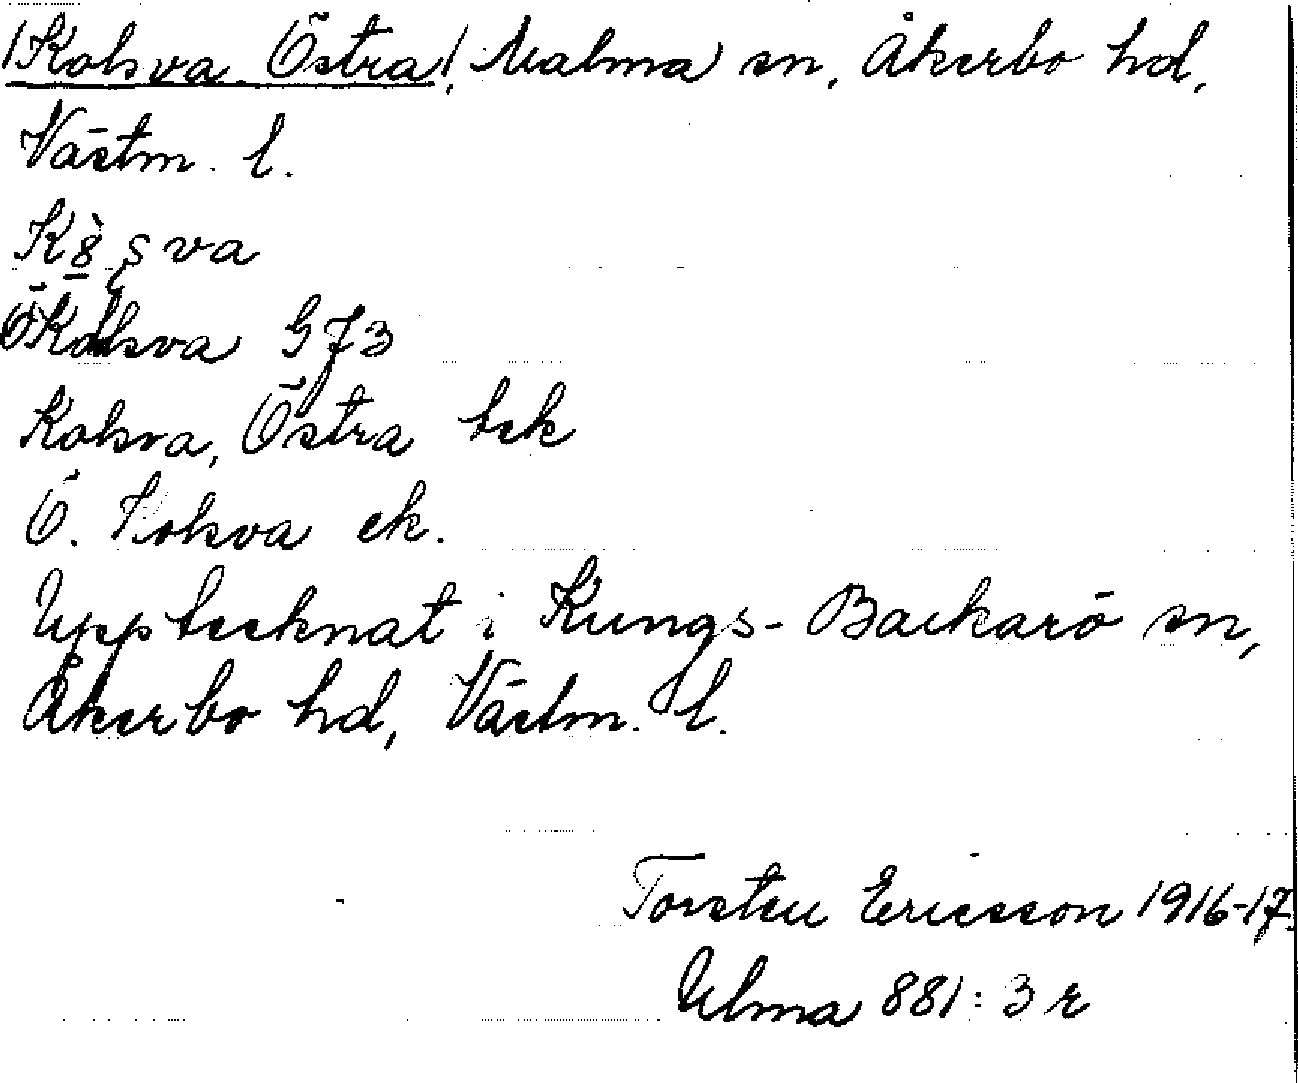 /Kolsva Östra/, Malma sn, Åkerbo hd,
Västm. l.
Kolsva G73
Kolsva, Östra tek
Ö. Kolsva ek.
Upptecknat i Kungs-Barkarö sn,
Åkerbo hd, Västm. l.
Torsten Ericsson 1916-17.
Ulma 881:3 r